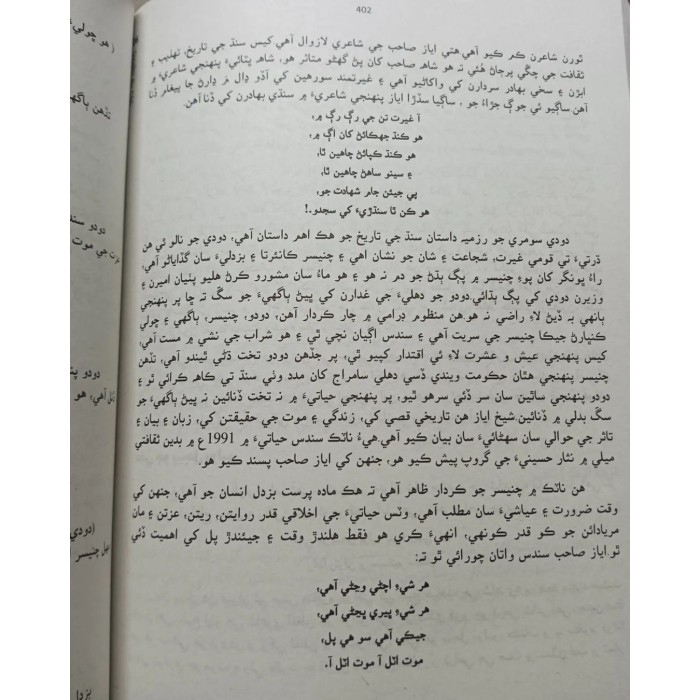 402
ٿورن شاعرن ڪم ڪيو آهي.هتي اياز صاحب جي شاعري لازوال آهي.ڪيس سنڌ جي تاريخ، تهذيب ۽
ثقافت جي چڱي پرڄاڻ هُئي ته هو شاهه صاحب کان پڻ گهڻو متاثر هو، شاهه ڀٽائيءَ پنهنجي شاعريءَ ۾
ابڙن ۽ سخي بهادر سردارن کي واکاڻيو آهي ۽ غيرتمند سورهين کي آڏو ڍال مَ ڍارڻ جا پيغام ڏنا
آهن.ساڳيو ئي جوڳ جڙاءُ جو ، ساڳيا سڏڙا اياز پنهنجي شاعريءَ ۾ سنڌي بهادرن کي ڏنا آهن.
آ غيرت تن جي رڳ رڳ ۾،
هو ڪنڌ جهڪائڻ کان اڳ ۾،
هو ڪنڌ ڪپائڻ چاهين ٿا،
۽ سينو ساهڻ چاهين ٿا،
پي جيئن جام شهادت جو،
هو ڪن ٿا سنڌڙيءَ کي سجدو.!
دودي سومري جو رزميه داستان سنڌ جي تاريخ جو هڪ اهم داستان آهي، دودي جو نالو ئي هن
ڌرتيءَ تي قومي غيرت، شجاعت ۽ شان جو نشان آهي ۽ چنيسر ڪانئرتا ۽ بزدليءَ سان گڏاياڻو آهي،
راءُ ڀونگر کان پوءِ چنيسر ۾ پڳ ٻڌڻ جو دم نه هو ۽ هو ماءُ سان مشورو ڪرڻ هليو پٺيان اميرن ۽
وزيرن دودي کي پڳ ٻڌائي.دودو جو دهليءَ جي غدارن کي ڀيڻ ٻاگهيءَ جو سڱ ته ڇا پر پنهنجي
ٻانهي به ڏيڻ لاءِ راضي نه هو.هن منظوم ڊرامي ۾ چار ڪردار آهن، دودو، چنيسر، ٻاگهي ۽ چولي
ڪنڀارڻ جيڪا چنيسر جي سريت آهي ۽ سندس اڳيان نچي ٿي ۽ هو شراب جي نشي ۾ مست آهي،
کيس پنهنجي عيش ۽ عشرت لاءِ ئي اقتدار کپيو ٿي، پر جڏهن دودو تخت ڌڻي ٿيندو آهي، تڏهن
چنيسر پنهنجي هٿان حڪومت ويندي ڏسي دهلي سامراج کان مدد وٺي سنڌ تي ڪاهه ڪرائي ٿو ۽
دودو پنهنجي ساٿين سان سر ڏئي سرهو ٿيو، پر پنهنجي حياتيءَ ۾ نه تخت ڏنائين نه ڀيڻ ٻاگهيءَ جو
سڱ بدلي ۾ ڏنائين.شيخ اياز هن تاريخي قصي کي، زندگي ۽ موت جي حقيقتن کي، زبان ۽ بيان ۽
تاثر جي حوالي سان سهڻائيءَ سان بيان ڪيو آهي.هيءُ ناٽڪ سندس حياتيءَ ۾ 1991ع ۾ بدين ثقافتي
ميلي ۾ نثار حسينيءَ جي گروپ پيش ڪيو هو، جنهن کي اياز صاحب پسند ڪيو هو.
هن ناٽڪ ۾ چنيسر جو ڪردار ظاهر آهي ته هڪ ماده پرست بزدل انسان جو آهي، جنهن کي
وقت ضرورت ۽ عياشيءَ سان مطلب آهي، وٽس حياتيءَ جي اخلاقي قدر روايتن، ريتن، عزتن ۽ مان
مريادائن جو ڪو قدر ڪونهي، انهيءَ ڪري هو فقط هلندڙ وقت ۽ جيئندڙ پل کي اهميت ڏئي
ٿو.اياز صاحب سندس واتان چورائي ٿو ته:
هر شيءِ اچڻي وڃڻي آهي،
هر شيءِ ڀيري ڀڃڻي آهي،
جيڪي آهي سو هي پل،
موت اٽل آ موت اٽل آ.